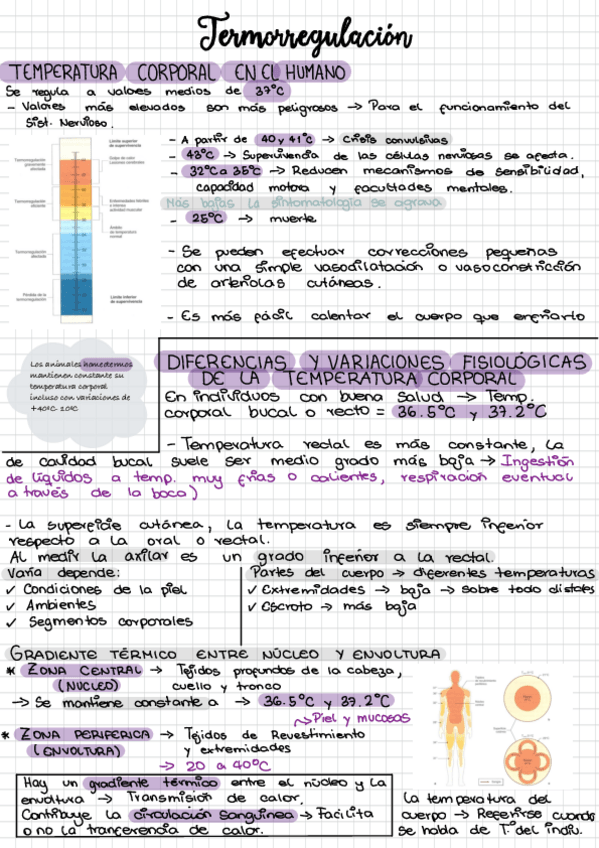 Termorregulación
TEMPERATURA CORPORAL EN EL HUMANO
Se regula a valores medios de 37°C
- Valores más elevados son más peligrosos → Para el funcionamiento del
Sist. Nervioso.
- A partir de 40 y 41°C → Crisis convulsivas
- 43°C → Supervivencia de las células nerviosas se afecta.
- 32°C a 35°C → Reducen mecanismos de sensibilidad,
capacidad motora y facultades mentales.
Más bajas la sintomatología se agrava
- 25°C → muerte
- Se pueden efectuar correcciones pequeñas
con una simple vasodilatación o vasoconstricción
de arteriolas cutáneas.
- Es más fácil calentar el cuerpo que enfriarlo
Límite superior
de supervivencia
Termorregulación
gravemente
afectada
Golpe de calor
Lesiones cerebrales
Termorregulación
eficiente
Enfermedades febriles
o intensa
actividad muscular
Ámbito
de temperatura
normal
Termorregulación
afectada
Pérdida de la
termorregulación
Límite inferior
de supervivencia
Los animales homedermos
mantienen constante su
temperatura corporal
incluso con variaciones de
DIFERENCIAS Y VARIACIONES FISIOLÓGICAS
DE LA TEMPERATURA CORPORAL
En individuos con buena salud → Temp.
corporal bucal o recto = 36.5°C y 37.2°C
- Temperatura rectal es más constante, la
de cavidad bucal suele ser medio grado más baja → Ingestión
de líquidos a temp. muy frías o calientes, respiración eventual
a través de la boca)
- La superficie cutánea, la temperatura es siempre inferior
respecto a la oral o rectal.
Al medir la axilar es un grado inferior a la rectal.
Varía depende:
✓ Condiciones de la piel
✓ Ambientes
✓ Segmentos corporales
Partes del cuerpo → diferentes temperaturas
✓ Extremidades → baja → sobre todo distales
✓ Escroto → más baja
GRADIENTE TÉRMICO ENTRE NÚCLEO Y ENVOLTURA
* ZONA CENTRAL → Tejidos profundos de la cabeza,
(NUCLEO) cuello y tronco
→ Se mantiene constante a → 36.5°C y 37.2°C
↝ Piel y mucosas
* ZONA PERIFERICA → Tejidos de Revestimiento
(ENVOLTURA) y extremidades
→ 20 a 40°C
Hay un gradiente térmico entre el núcleo y la
envoltura → Transmisión de calor.
Contribuye la circulación sanguínea → Facilita
o no la tranferencia de calor.
La temperatura del
cuerpo → Referirse cuando
se habla de T. del indiv.